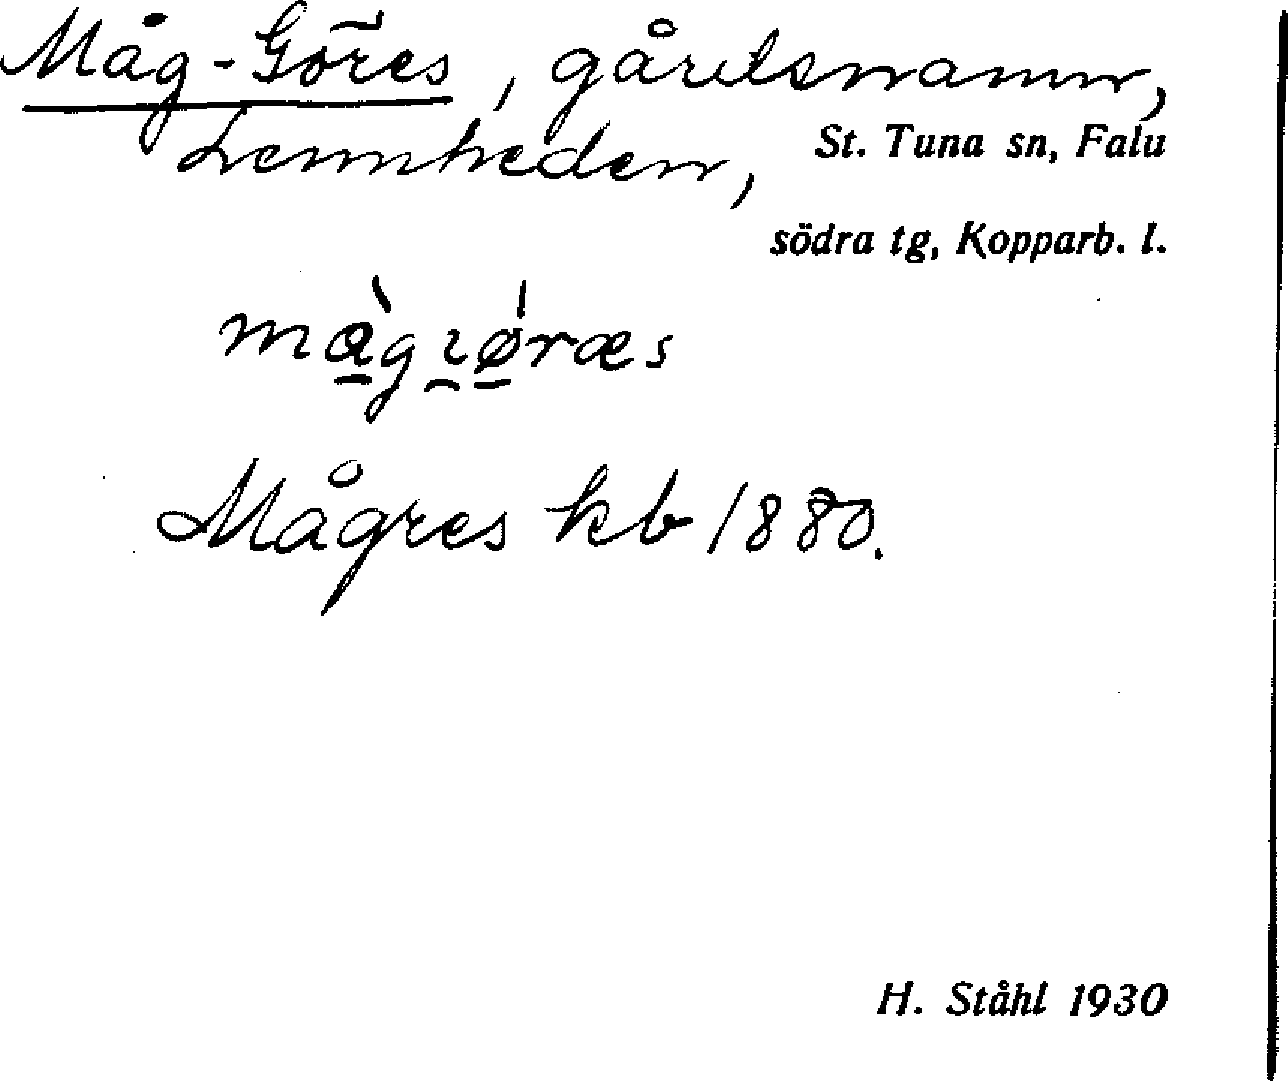 Måg-Göres, gårdsnamn,
Lennheden, St. Tuna sn, Falu
södra tg, Kopparb. l.
Mågres kb 1880.
H. Ståhl 1930